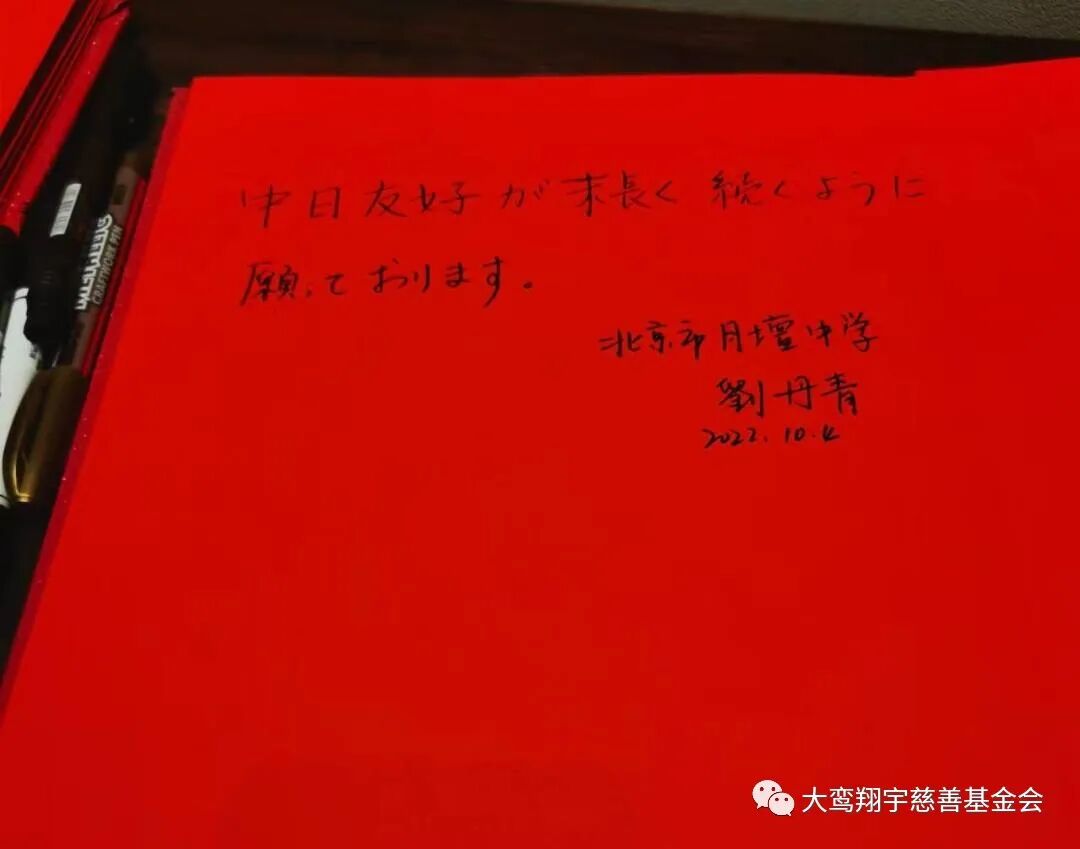 中日友好が末長く続くように
願っております。
北京市月壇中学
劉丹青
2022.10.4
CRAFTWORK PEN
大鸾翔宇慈善基金会